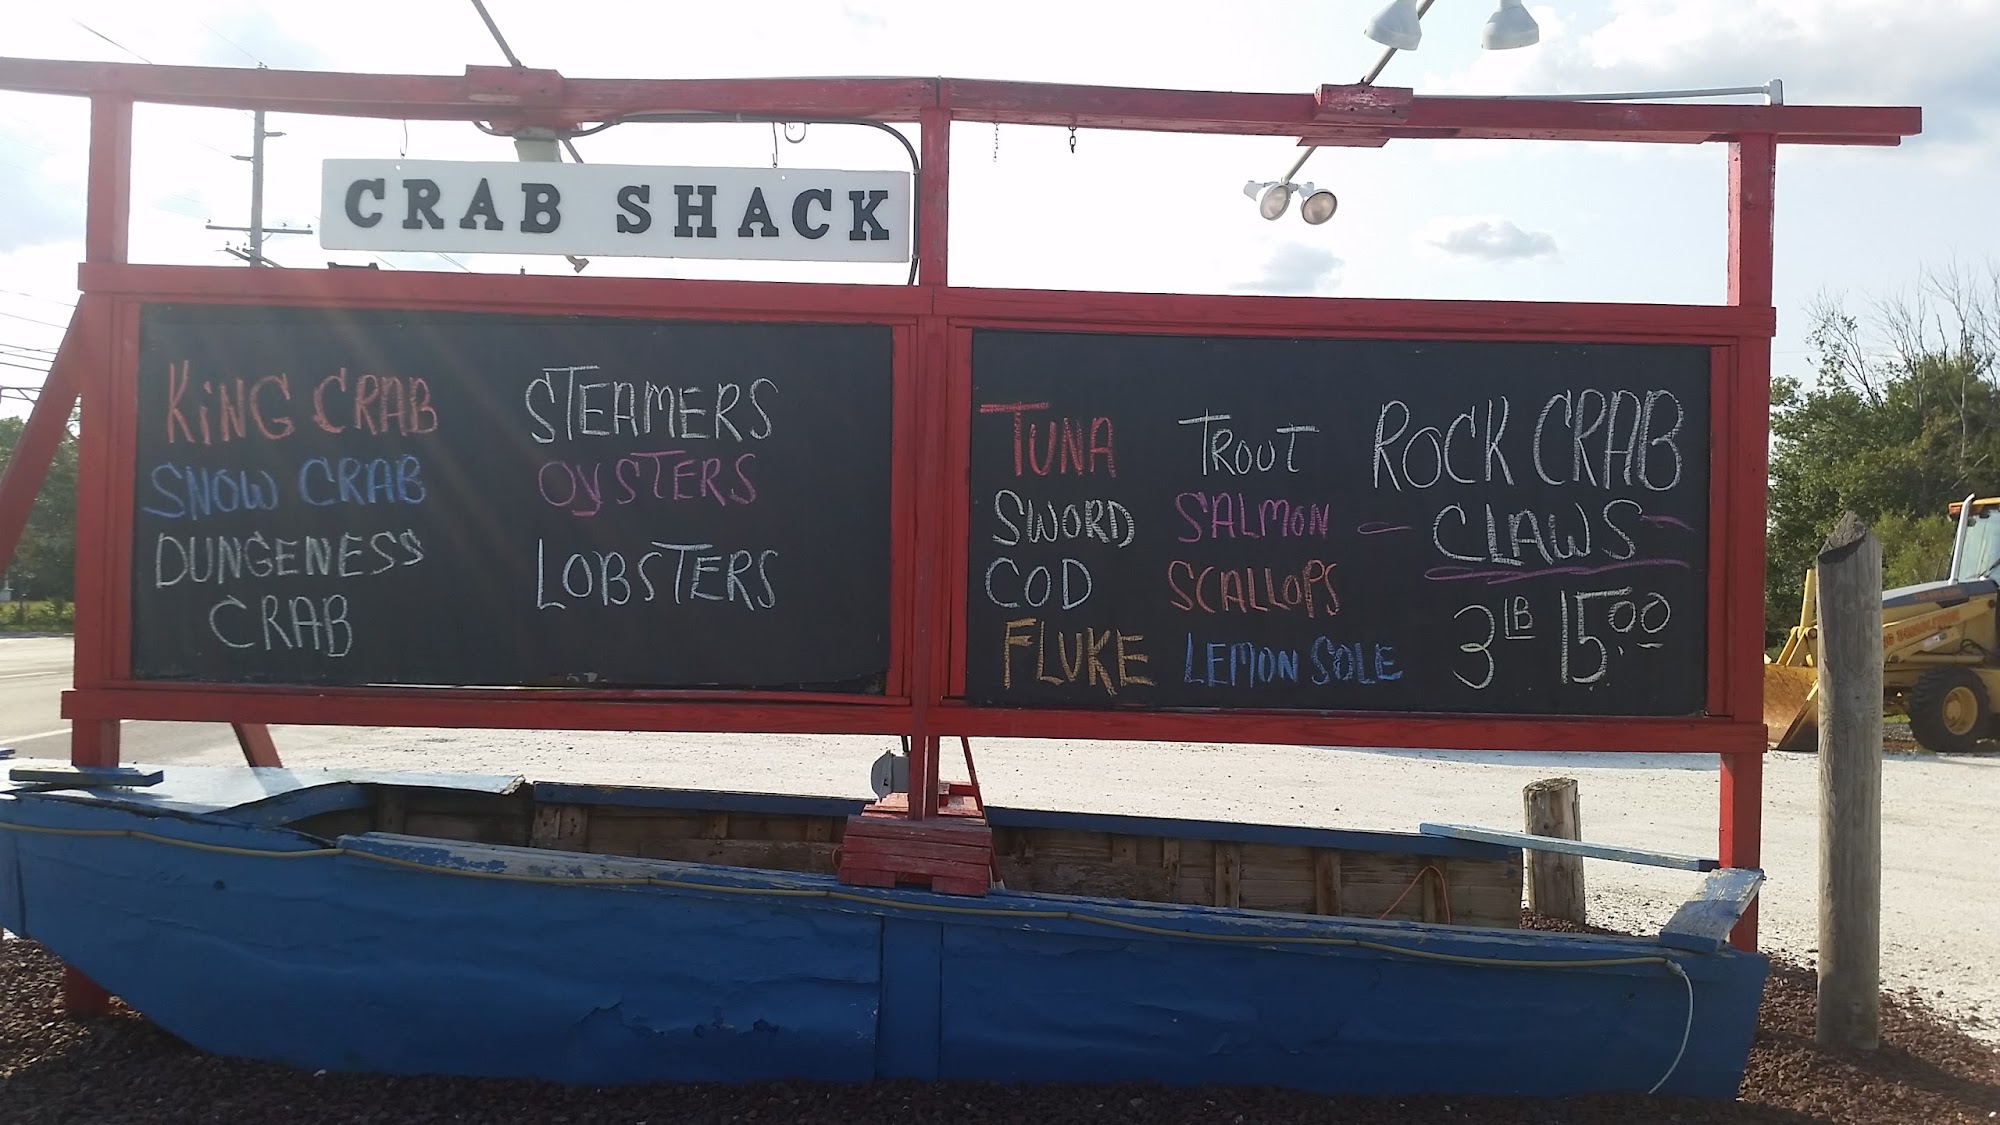 CRAB SHACK
KiNG CRAB
SNOW CRAB
DUNGENESS
CRAB
STEAMERS
OySTERS
LOBSTERS
TUNA
SWORD
COD
FLUKE
TROUT
SALMON
SCALLOPS
LEMON SOLE
ROCK CRAB
CLAWS
3 LB 15.00